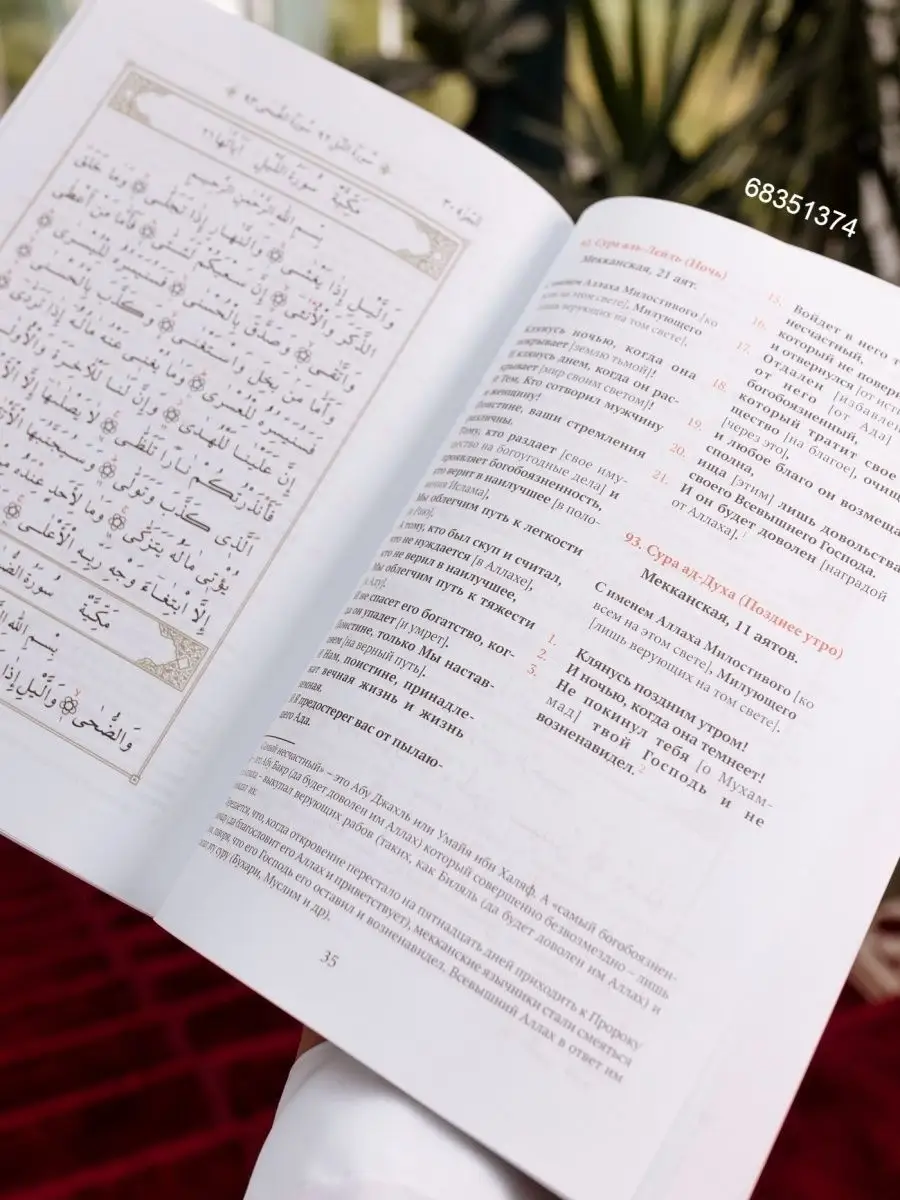 68351374
سُورَةُ اللَّيْلِ ٩٢ سُورَةُ الضُّحَى ٩٣
الجزء ٣٠
مَكِّيَّة سُورَةُ اللَّيْلِ آيَاتُهَا ٢١
بِسْمِ اللهِ الرَّحْمٰنِ الرَّحِيمِ
وَالَّيْلِ إِذَا يَغْشَى وَالنَّهَارِ إِذَا تَجَلَّى وَمَا خَلَقَ
الذَّكَرَ وَالْأُنْثَى إِنَّ سَعْيَكُمْ لَشَتَّى فَأَمَّا مَنْ أَعْطَى
وَاتَّقَى وَصَدَّقَ بِالْحُسْنَى فَسَنُيَسِّرُهُ لِلْيُسْرَى
وَأَمَّا مَنْ بَخِلَ وَاسْتَغْنَى وَكَذَّبَ بِالْحُسْنَى
فَسَنُيَسِّرُهُ لِلْعُسْرَى وَمَا يُغْنِي عَنْهُ مَالُهُ إِذَا تَرَدَّى
إِنَّ عَلَيْنَا لَلْهُدَى وَإِنَّ لَنَا لَلْآخِرَةَ وَالْأُولَى
فَأَنْذَرْتُكُمْ نَارًا تَلَظَّى لَا يَصْلَاهَا إِلَّا
الَّذِي كَذَّبَ وَتَوَلَّى وَسَيُجَنَّبُهَا
يُؤْتِي مَالَهُ يَتَزَكَّى وَمَا لِأَحَدٍ عِنْدَهُ
إِلَّا ابْتِغَاءَ وَجْهِ رَبِّهِ الْأَعْلَى
مَكِّيَّة سُورَةُ
بِسْمِ اللهِ
وَالضُّحَى وَالَّيْلِ إِذَا
92. Сура аль-Лейль (Ночь)
Мекканская, 21 аят.
С именем Аллаха Милостивого [ко
всем на этом свете], Милующего
[лишь верующих на том свете].
Клянусь ночью, когда она
покрывает [землю тьмой]!
И клянусь днем, когда он рас-
крывает [мир своим светом]!
и Тем, Кто сотворил мужчину
и женщину!
Поистине, ваши стремления
различны.
Тому, кто раздает [свое иму-
щество на богоугодные дела] и
проявляет богобоязненность,
кто верит в наилучшее [в поло-
жения Ислама],
Мы облегчим путь к легкости
[к Раю].
А тому, кто был скуп и считал,
что не нуждается [в Аллахе],
кто не верил в наилучшее,
Мы облегчим путь к тяжести
[к Аду].
И не спасет его богатство, ког-
да он упадет [и умрет].
Поистине, только Мы настав-
ляем [на верный путь].
И Нам, поистине, принадле-
жат вечная жизнь и жизнь
земная.
И Я предостерег вас от пылаю-
щего Ада.
15. Войдет в него
несчастный,
16. который не повери
и отвернулся [от ист
17. Отдален [избавлен
от него [от Ада]
богобоязненный,
18. который тратит свое
щество [на благое], очищ
[через это],
19. и любое благо он возмеща
сполна,
20. ища [этим] лишь довольства
своего Всевышнего Господа.
21. И он будет доволен [наградой
от Аллаха].
93. Сура ад-Духа (Позднее утро)
Мекканская, 11 аятов.
С именем Аллаха Милостивого [ко
всем на этом свете], Милующего
[лишь верующих на том свете].
1. Клянусь поздним утром!
2. И ночью, когда она темнеет!
3. Не покинул тебя [о Мухам-
мад] твой Господь и не
возненавидел.2
Самый несчастный» – это Абу Джахль или Умайя ибн Халяф. А «самый богобоязнен-
– это Абу Бакр (да будет доволен им Аллах) который совершенно безвозмездно – лишь
– выкупал верующих рабов (таких, как Биляль (да будет доволен им Аллах) и
что, когда откровение перестало на пятнадцать дней приходить к Пророку
(да благословит его Аллах и приветствует), мекканские язычники стали смеяться
говоря, что его Господь его оставил и возненавидел. Всевышний Аллах в ответ им
эту суру (Бухари, Муслим и др).
35